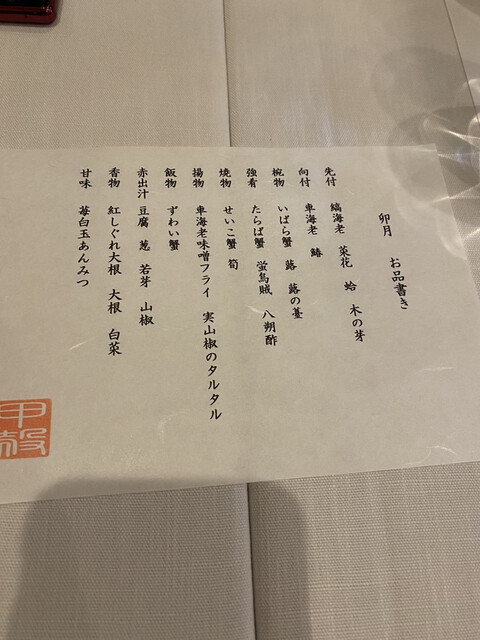 卯月　お品書き
先付　縞海老　菜花　蛤　木の芽
向付　車海老　鰆
椀物　いばら蟹　蕗　蕗の薹
強肴　たらば蟹　蛍烏賊　八朔酢
焼物　せいこ蟹　筍
揚物　車海老味噌フライ　実山椒のタルタル
飯物　ずわい蟹
赤出汁　豆腐　葱　若芽　山椒
香物　紅しぐれ大根　大根　白菜
甘味　苺白玉あんみつ
甲殻